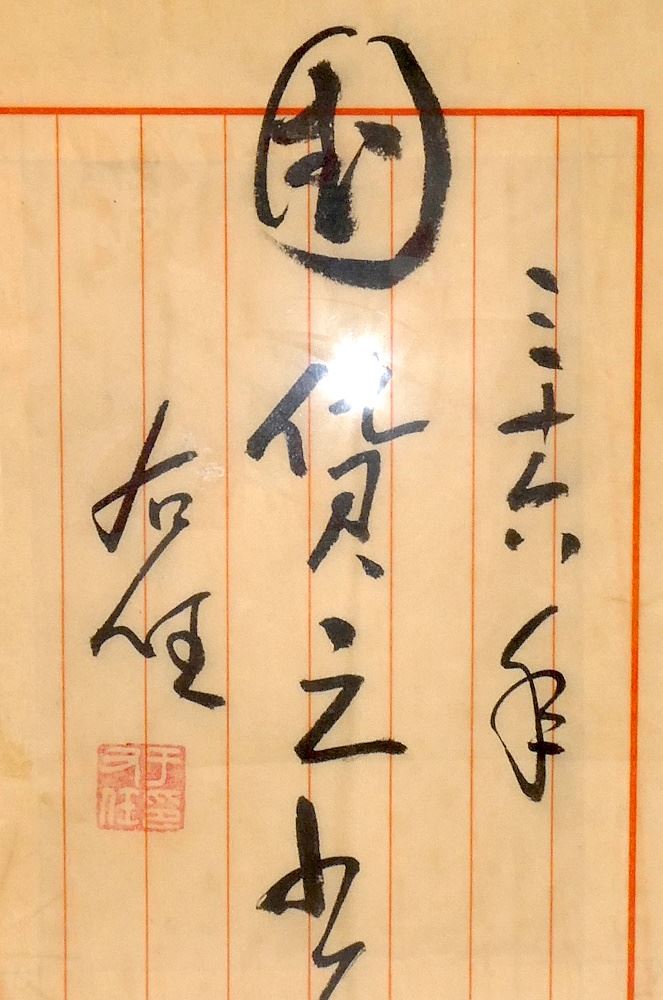 三十六年
國貨之光
右任
于印
右任